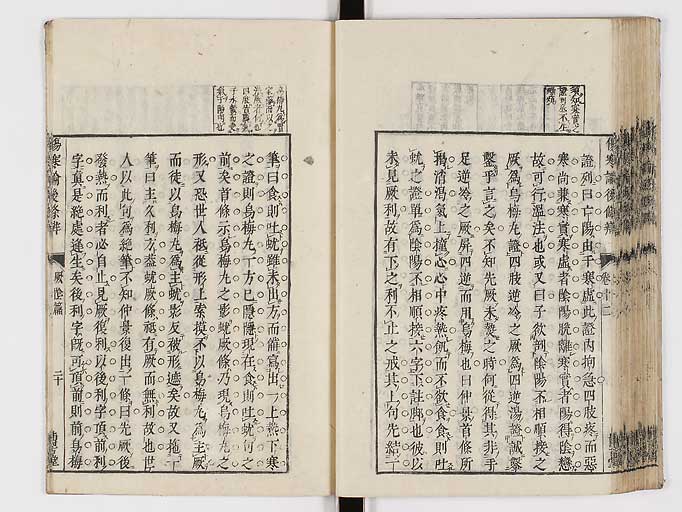 證列曰亡陽由于寒虛此證內拘急四肢疼而惡
寒尚兼寒實寒虛者陰陽脫離寒實者陽得陰戀
故可行溫法也或又曰子欲剖陰陽不相順接之
厥爲烏梅丸證四肢逆冷之厥爲四逆湯證誠鑿
鑿乎言之矣不知先厥未熱之時何從得其非手
足逆冷之厥屏四逆而用烏梅也曰仲景首條所
揭消渴氣上撞心心中疼熱飢而不欲食食則吐
蚘之證單爲陰陽不相順接六字下註與也彼以
未見厥利故有下之利不止之戒其上句先結
筆曰食則吐蚘雖未出方而備寫出一上熱下寒
之證則烏梅丸一方已隱隱現在食則吐蚘句之
前矣首條示烏梅丸之影蚘厥條乃現烏梅丸之
形又恐世人秪從形上索摸不以烏梅丸爲主厥
而徒以烏梅丸爲主蚘影反被形遮矣故又拖一
筆曰主久利方蓋蚘厥條秪有厥而無利故也世
人以此句爲絕筆不知仲景復出一條曰先厥後
發熱而利者必自止見厥復利以後利字頂前利
字真是絕處逢生矣後利字既可頂前則前烏梅
傷寒論後條辨
厥陰篇
二十
卷十二